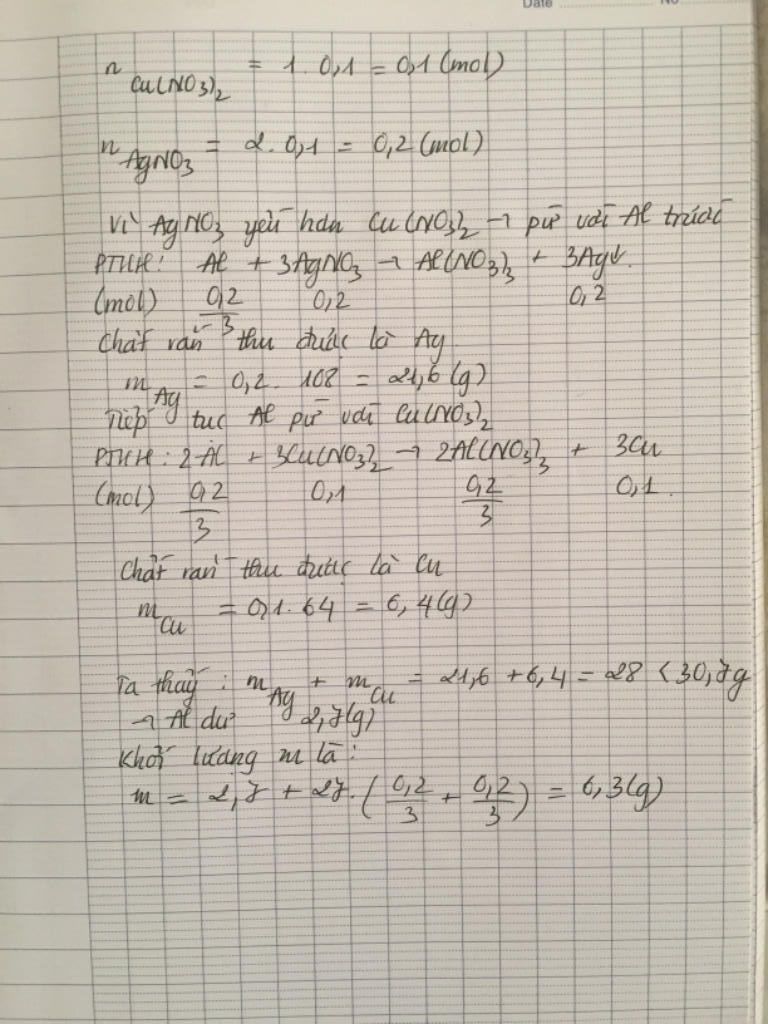 Date No
n Cu(NO3)2 = 1. 0,1 = 0,1 (mol)
n AgNO3 = 2. 0,1 = 0,2 (mol)
Vì AgNO3 yếu hơn Cu(NO3)2 → pứ với Al trước
PTHH: Al + 3AgNO3 → Al(NO3)3 + 3Ag↓.
(mol) 0,2/3 0,2 0,2
Chất rắn thu được là Ag
mAg = 0,2. 108 = 21,6 (g)
Tiếp tục Al pứ với Cu(NO3)2
PTHH: 2Al + 3Cu(NO3)2 → 2Al(NO3)3 + 3Cu
(mol) 0,2/3 0,1 0,2/3 0,1.
Chất rắn thu được là Cu
mCu = 0,1. 64 = 6,4(g)
Ta thấy: mAg + mCu = 21,6 + 6,4 = 28 < 30,7g
→ Al dư 2,7(g)
Khối lượng m là:
m = 2,7 + 27. (0,2/3 + 0,2/3) = 6,3(g)